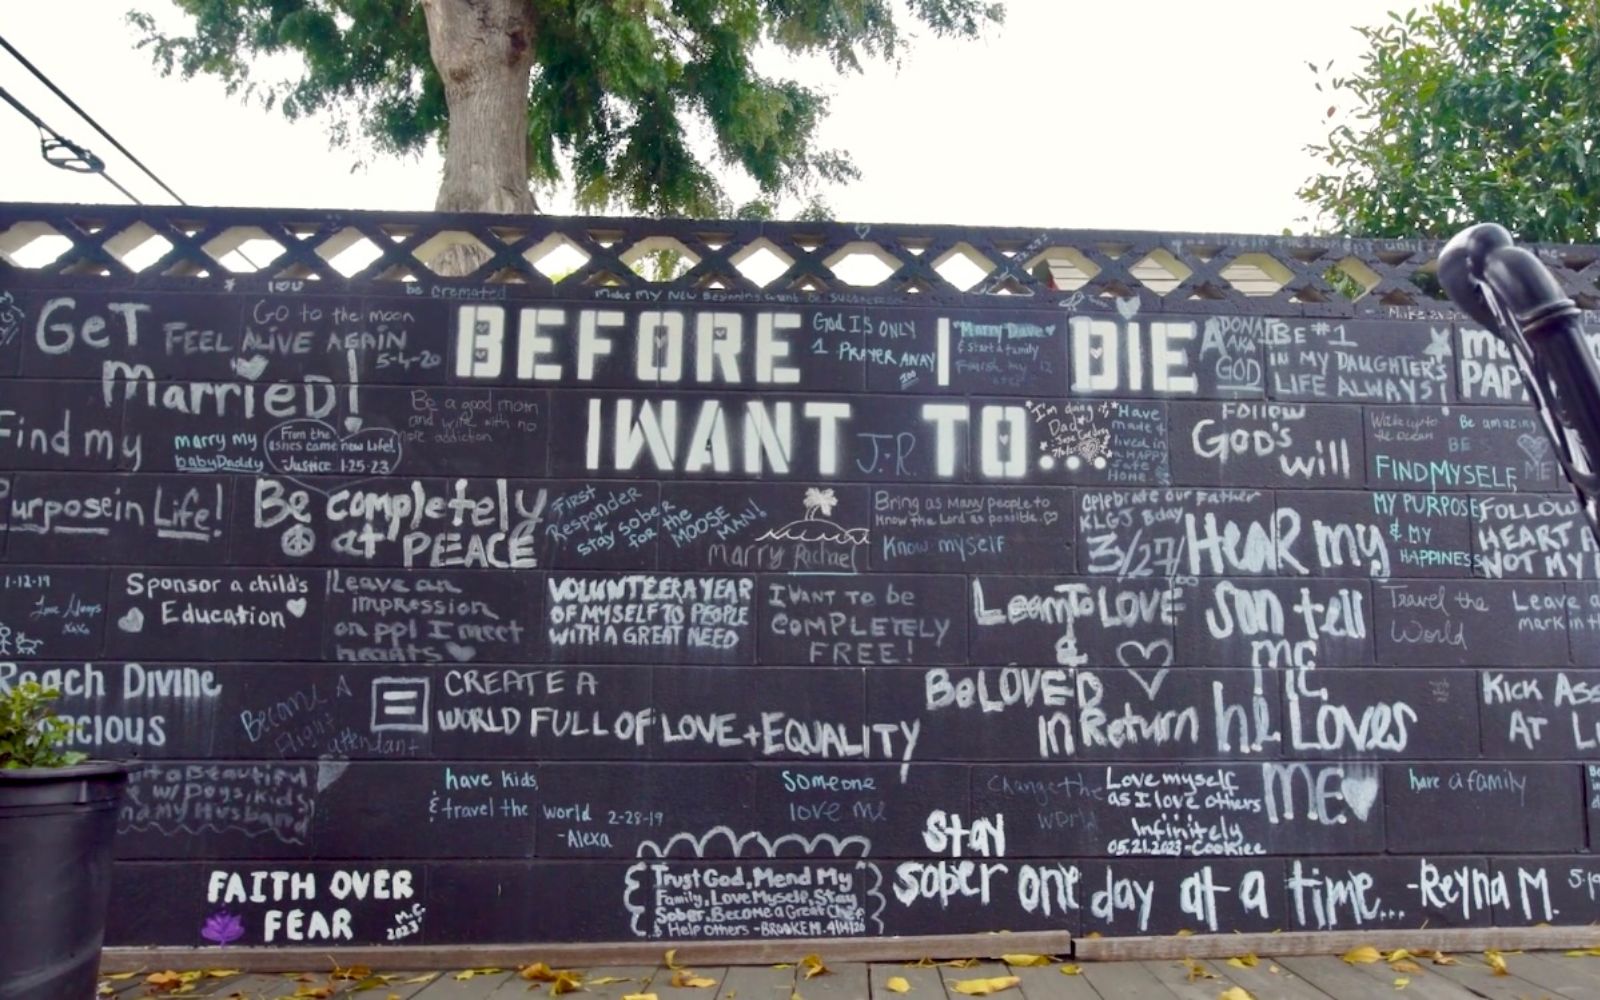 BEFORE I DIE
I WANT TO...
be cremated
GeT
MARRIED!
FEEL ALIVE AGAIN
5-4-20
Go to the moon
God IS ONLY
1 PRAYER AWAY
Marry Dave
& start a family
ADONAI
AKA
GOD
BE #1
IN MY DAUGHTER'S
LIFE ALWAYS!
Find my
Purpose in Life!
marry my
babyDaddy
From the
ashes came new Life!
Justice 1-25-23
Be a good mom
and wife with no
more addiction.
J.R
I'm doing it,
Dad
Have
made &
lived in
a HAPPY
safe
Home.
Follow
God's
will
the ocean
Be amazing
BE
ME
FIND MYSELF,
MY PURPOSE
& MY
HAPPINESS
Be completely
at PEACE
First
Responder
stay sober
for the
MOOSE
MAN!
marry Rachael
Bring as many people to
know the Lord as possible.
Know myself
Celebrate our Father
KLGJ Bday
3/27/
Hear my
Son tell
me
he Loves
ME
FOLLOW
HEART
NOT MY
1-12-19
Love Always
xoxo
Sponsor a child's
Education
Leave an
impression
on ppl I meet
hearts
VOLUNTEER A YEAR
OF MYSELF TO PEOPLE
WITH A GREAT NEED
I WANT to be
COMPLETELY
FREE!
Learn To LOVE
&
BeLOVE'D
in Return
Travel the
World
Leave a
mark in th
Reach Divine
Become A
Flight
attendant
=
CREATE A
WORLD FULL OF LOVE + EQUALITY
KICK ASS
AT
a Beautiful
w/ Dogs, Kids,
and my Husband
have kids,
& travel the world 2-28-19
-Alexa
Someone
love me
Change the
world
Love myself
as I love others
Infinitely
05.21.2023 -Cookiee
have a family
FAITH OVER
FEAR
M.C.
2023
Trust God, Mend My
Family, Love Myself, Stay
Sober, Become a Great Chef
& Help Others -BROOKE M. 4/14/20
Stay
sober one day at a time... -Reyna M.